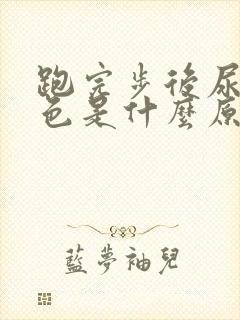 跑完步後尿
色是什麼原
藍夢袖兒